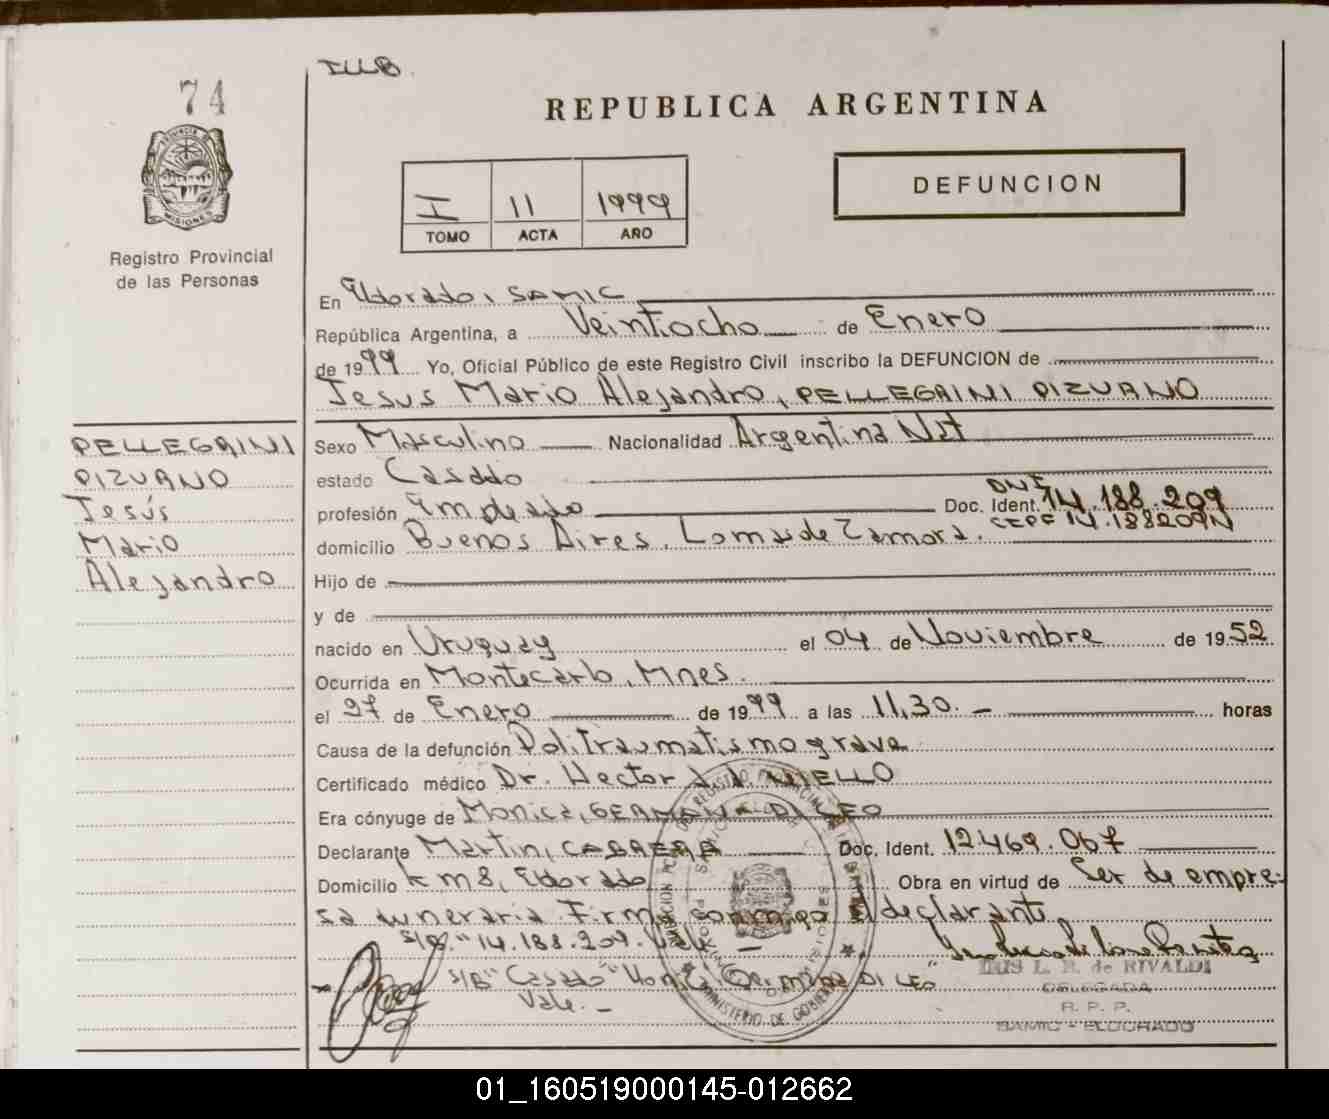 74
Registro Provincial
de las Personas
REPUBLICA ARGENTINA
DEFUNCION
I 11 1999
TOMO ACTA AÑO
En Eldorado, SAMIC
República Argentina, a Veintiocho de Enero
de 1999 Yo, Oficial Público de este Registro Civil inscribo la DEFUNCION de
Jesus Mario Alejandro, PELLEGRINI PIZURNO
PELLEGRINI
PIZURNO
Jesús
Mario
Alejandro
Sexo Masculino Nacionalidad Argentina Nat
estado Casado
profesión Empleado Doc. Ident. DNI 14.188.209
domicilio Buenos Aires, Lomas de Zamora. 14.188209N
Hijo de
y de
nacido en Uruguay el 04 de Noviembre de 1952
Ocurrida en Montecarlo, Mnes.
el 27 de Enero de 1999 a las 11,30.- horas
Causa de la defunción Politraumatismo grave
Certificado médico Dr. Hector
Era cónyuge de Monica, GERMANA DI LEO
Declarante Martin, CABRERA Doc. Ident. 12.469.067
Domicilio km 8, Eldorado Obra en virtud de Ser de empre-
sa funeraria Firma conmigo el declarante,
S/R "14.188.209. Vale -
S/R "Casado" "Monica Germana DI LEO"
Vale.-
IRIS L. R. de RIVALDI
DELEGADA
R. P. P.
SAMIC - ELDORADO
MINISTERIO DE GOBIERNO
01_160519000145-012662